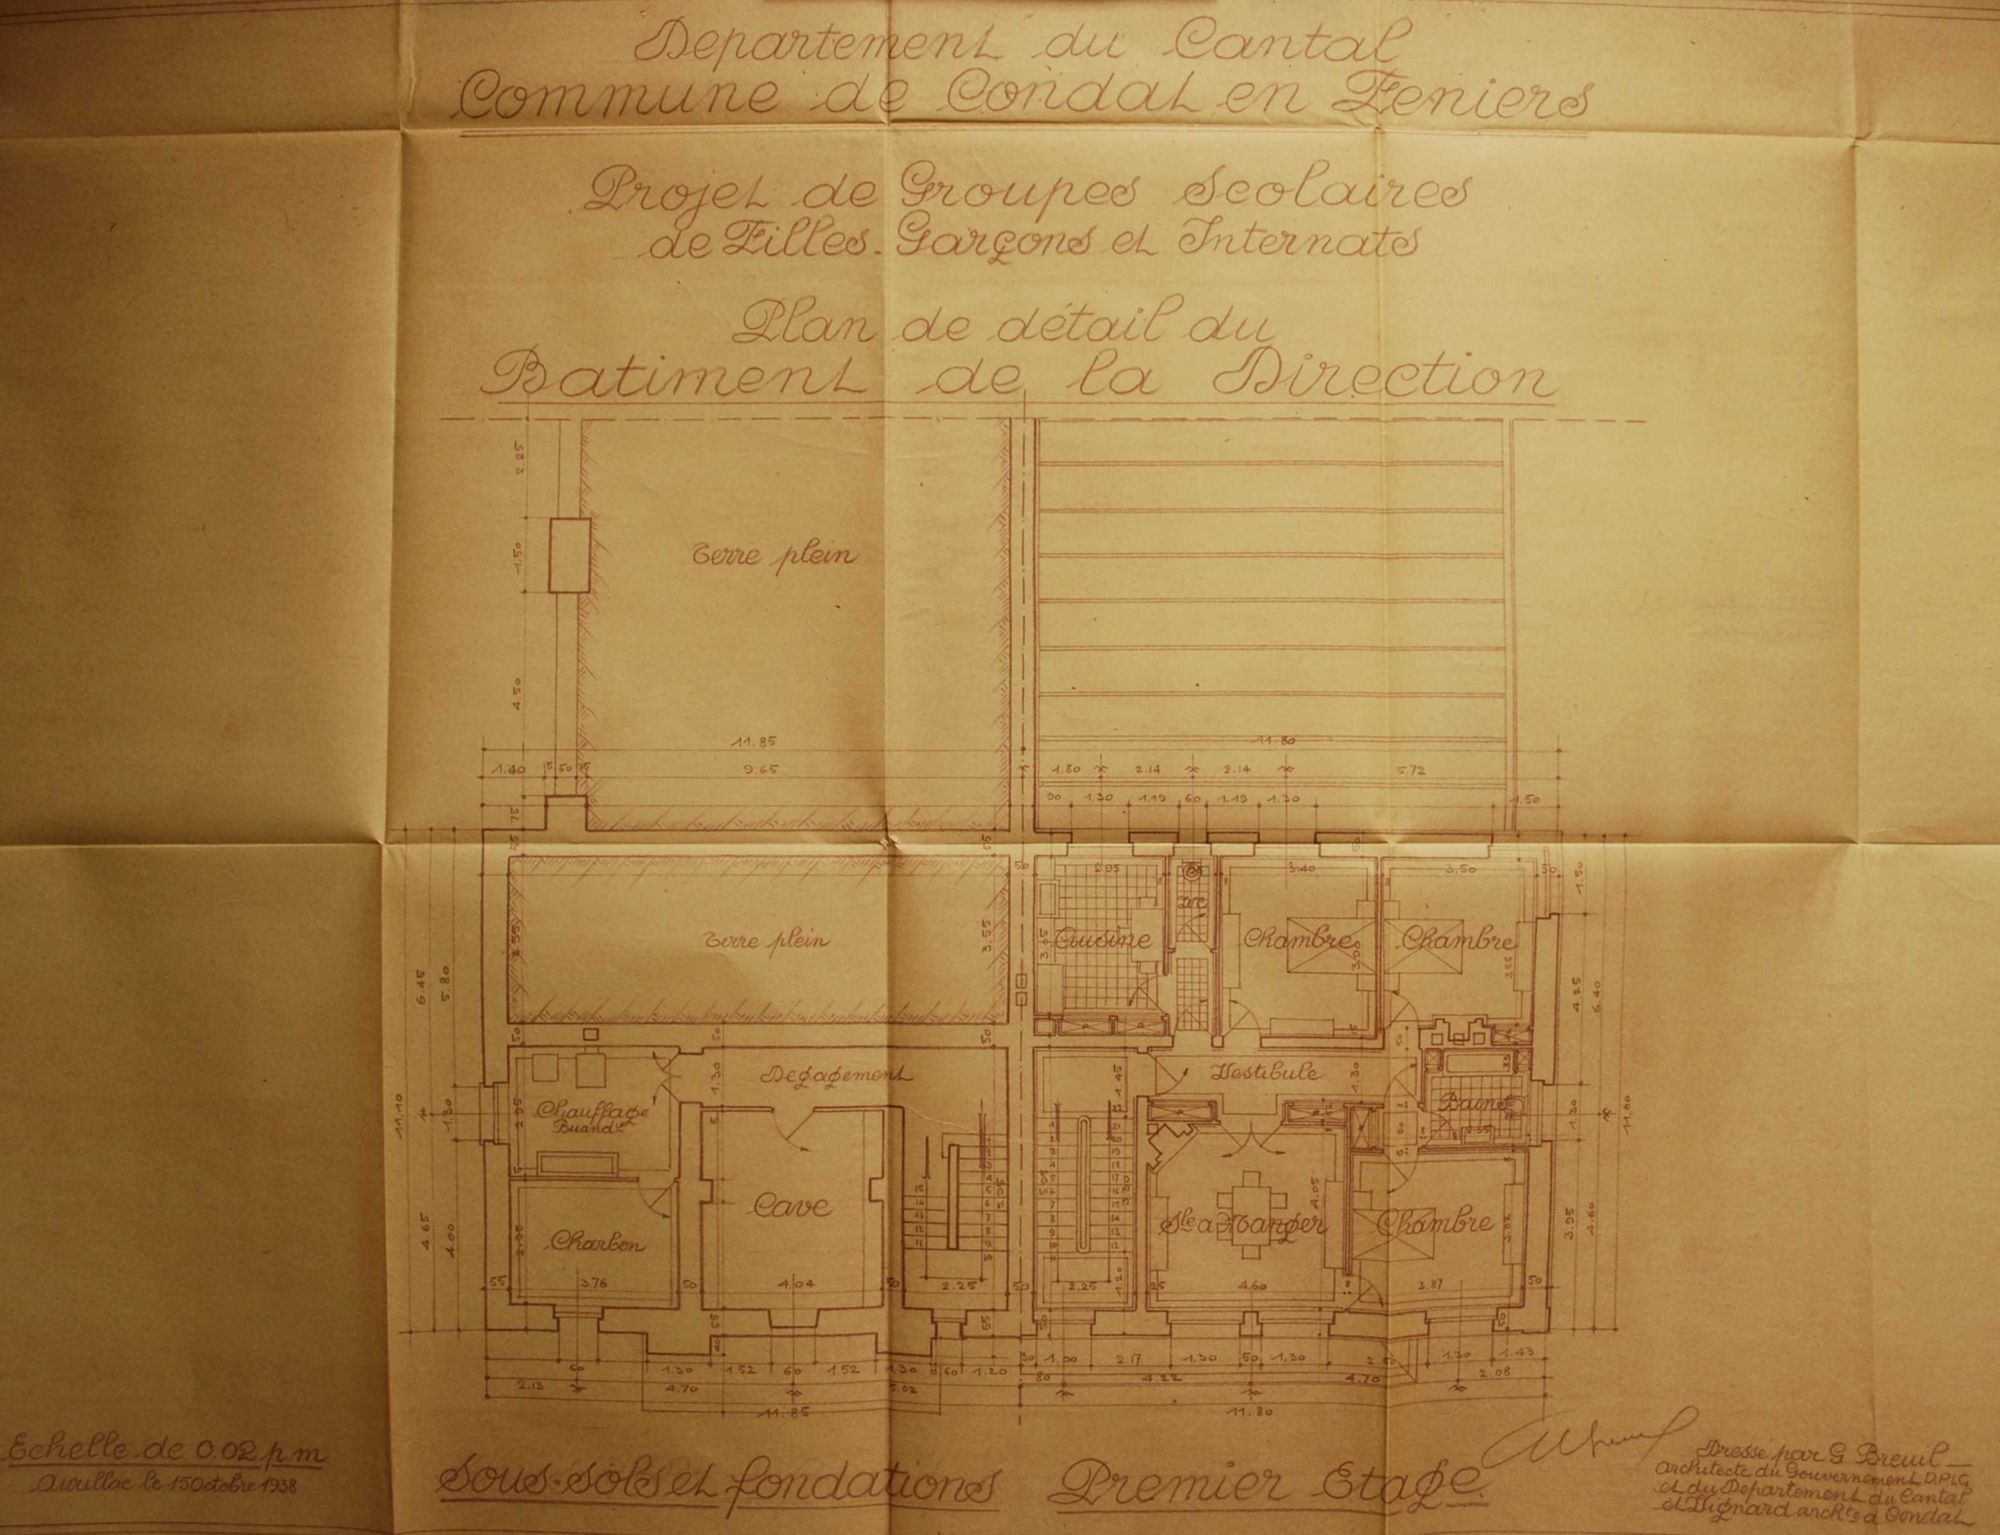 Departement du Cantal
Commune de Condat en Feniers
Projet de Groupes Scolaires
de Filles. Garçons et Internats
Plan de détail du
Batiment de la Direction
2.25
1.50
4.50
Terre plein
11.85
1.40 5 50 15 9.65
75
11.80
1.80 2.14 2.14 5.72
90 1.30 1.19 60 1.19 1.30 1.50
55 55
Terre plein
3.55 3.55
6.45 5.80
11.10
1.30
4.65 4.00
50 50 50
Degagement
1.30
Chauffage
Buandie
2.95
Cave
Charbon
2.05
55 3.76 50 4.04 50 2.25 50
55 55
60 1.30 1.52 60 1.52 1.30 60 1.20
2.13 4.70 5.02
11.85
2.95 3.40 3.50 50
Cuisine wc Chambre Chambre
3.05 3.90 3.55
1.50
4.25 6.40
Vestibule
1.45 1.30
Bains
1.20
11.00
Sle a Manger Chambre
5.05 4.05 3.02
3.95 4.60
1.20
2.25 25 4.60 3.87 50
30 1.00 2.17 1.30 50 1.30 2.50 1.30 1.43
80 4.22 4.70 2.08
11.80
Sous-sols et fondations
Premier Etage.
Echelle de 0.02 p.m
Aurillac le 15 Octobre 1938
Dressé par G Breuil
architecte du Gouvernement D.P.L.G
et du Departement du Cantal
et Vignard archte a Condat